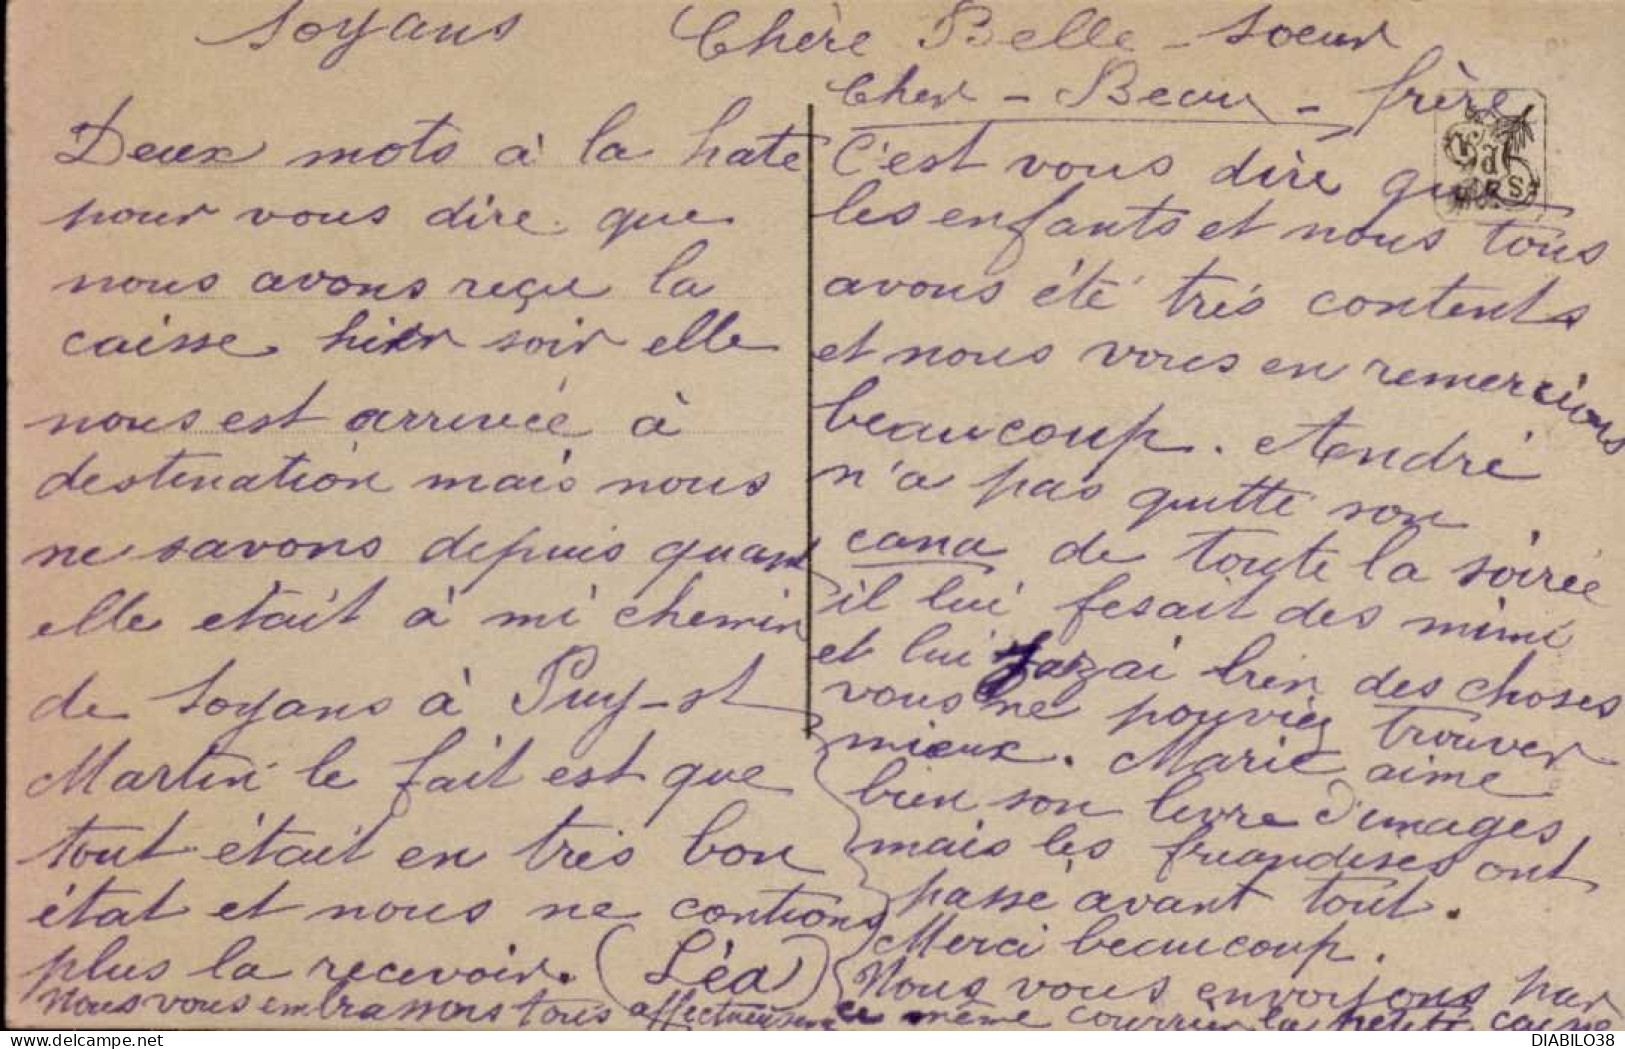 Soyans Chère Belle-Soeur
Cher-Beau-frère
Deux mots à la hate
pour vous dire que
nous avons reçu la
caisse hier soir elle
nous est arrivée à
destination mais nous
ne savons depuis quand
elle était à mi chemin
de Soyans à Puy-st
Martin le fait est que
tout était en très bon
état et nous ne contions
plus la recevoir. (Léa)
Nous vous embrassons tous affectueusem
C'est vous dire que
les enfants et nous tous
avons été très contents
et nous vous en remercions
beaucoup. André
n'a pas quitté son
cana de toute la soirée
il lui fesait des mimi
et lui bien des choses
vous ne pouviez trouver
mieux. Marie aime
bien son livre d'images
mais les friandises ont
passé avant tout.
Merci beaucoup.
Nous vous envoyons par
ce même courrier la petite caisse
DIABILO38